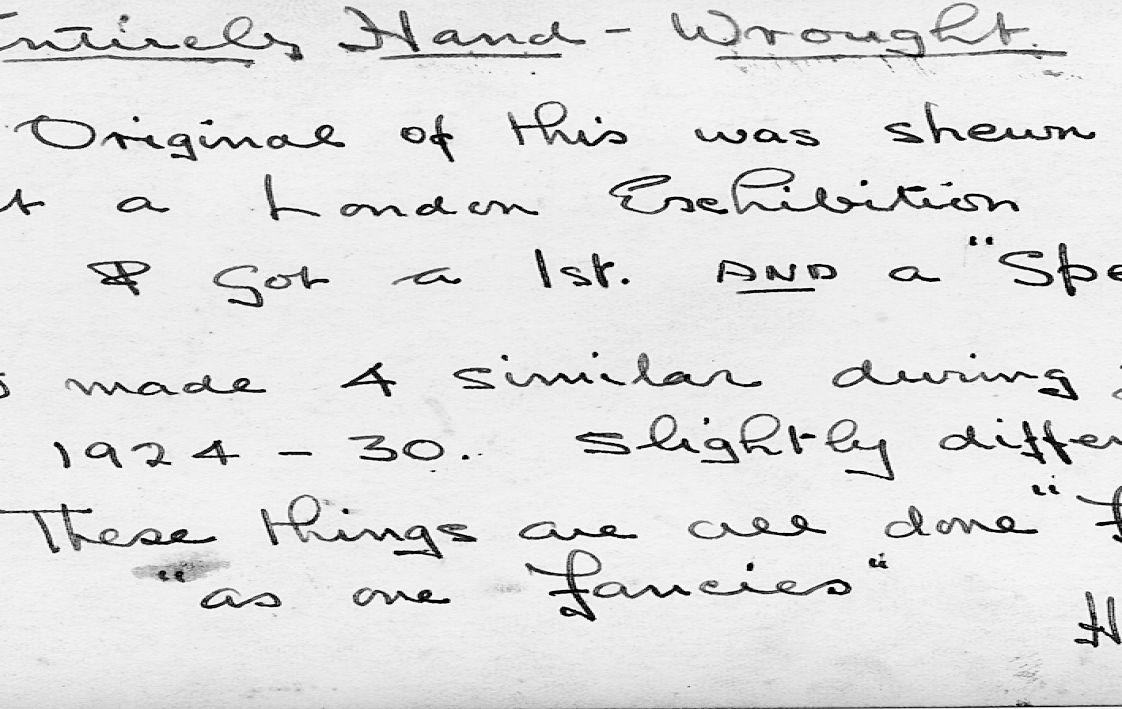 Entirely Hand - Wrought.
Original of this was shewn
at a London Exhibition
& Got a 1st. AND a "Spe
made 4 similar during
1924 - 30. Slightly differ
These things are all done "F
"as one Fancies"
H